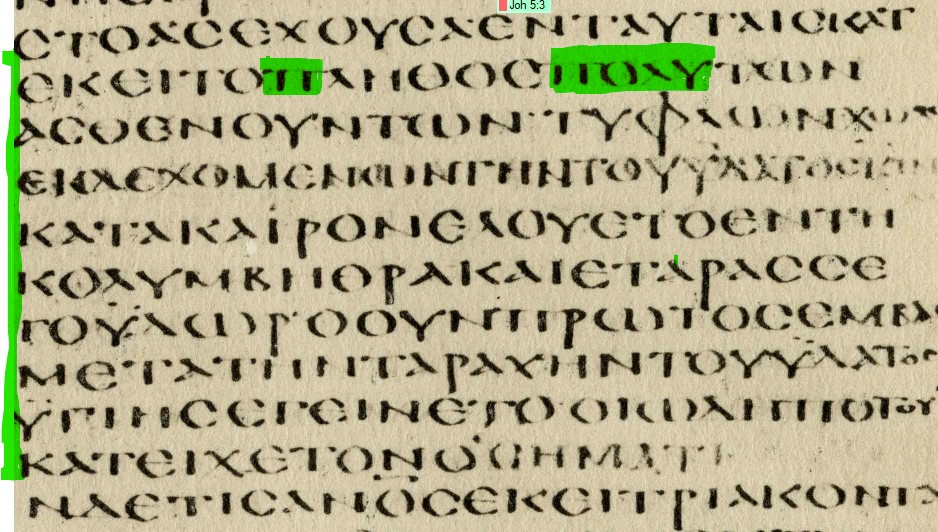 Joh 5:3
ϹΤΟΑϹΕΧΟΥϹΑΕΝΤΑΥΤΑΙϹΚΑΤ
ΕΚΕΙΤΟΠΛΗΘΟϹΠΟΛΥΤΩΝ
ΑϹΘΕΝΟΥΝΤΩΝ·ΤΥΦΛΩΝΧΩΛΩ
ΕΚΔΕΧΟΜΕΝΩΝΤΗΝΤΟΥΫΔΑΤΟϹΚΙΝ
ΚΑΤΑΚΑΙΡΟΝΕΛΟΥΕΤΟΕΝΤΗ
ΚΟΛΥΜΒΗΘΡΑΚΑΙΕΤΑΡΑϹϹΕ
ΤΟΫΔΩΡ·ΟΟΥΝΠΡΩΤΟϹΕΜΒΑ
ΜΕΤΑΤΗΝΤΑΡΑΧΗΝΤΟΥΫΔΑΤΟϹ
ΫΓΙΗϹΕΓΕΙΝΕΤΟΟΙΩΔΗΠΟΤΟΥ
ΚΑΤΕΙΧΕΤΟΝΟϹΗΜΑΤΙ
ΝΔΕΤΙϹΑΝΟϹΕΚΕΙΤΡΙΑΚΟΝΤΑ